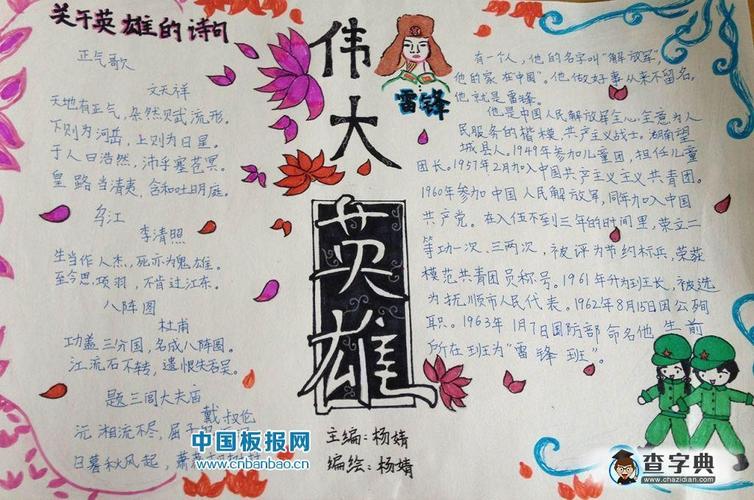 关于英雄的诗句
正气歌
文天祥
天地有正气,杂然赋流形。
下则为河岳,上则为日星。
于人曰浩然,沛乎塞苍冥。
皇路当清夷,含和吐明庭。
乌江
李清照
生当作人杰,死亦为鬼雄。
至今思项羽,不肯过江东。
八阵图
杜甫
功盖三分国,名成八阵图。
江流石不转,遗恨失吞吴。
题三闾大夫庙
戴叔伦
沅湘流不尽,屈子
日暮秋风起,萧萧
伟大
英雄
主编:杨婧
编绘:杨婧
雷锋
有一个人,他的名字叫"解放军",
他的家在中国"。他做好事从来不留名,
他就是雷锋。
他是中国人民解放军全心全意为人
民服务的楷模,共产主义战士。湖南望
城县人。1949年参加儿童团,担任儿童
团长。1957年2月加入中国共产主义主义共青团。
1960年参加中国人民解放军,同年加入中国
共产党。在入伍不到三年的时间里,荣立二
等功一次、三两次,被评为节约标兵,荣获
模范共青团员称号。1961年升为班长,被选
为抚顺市人民代表。1962年8月15日因公殉
职。1963年1月7日国防部命名他生前
所在班为"雷锋班"。
中国板报网
www.cnbanbao.cn
查字典
www.chazidian.com